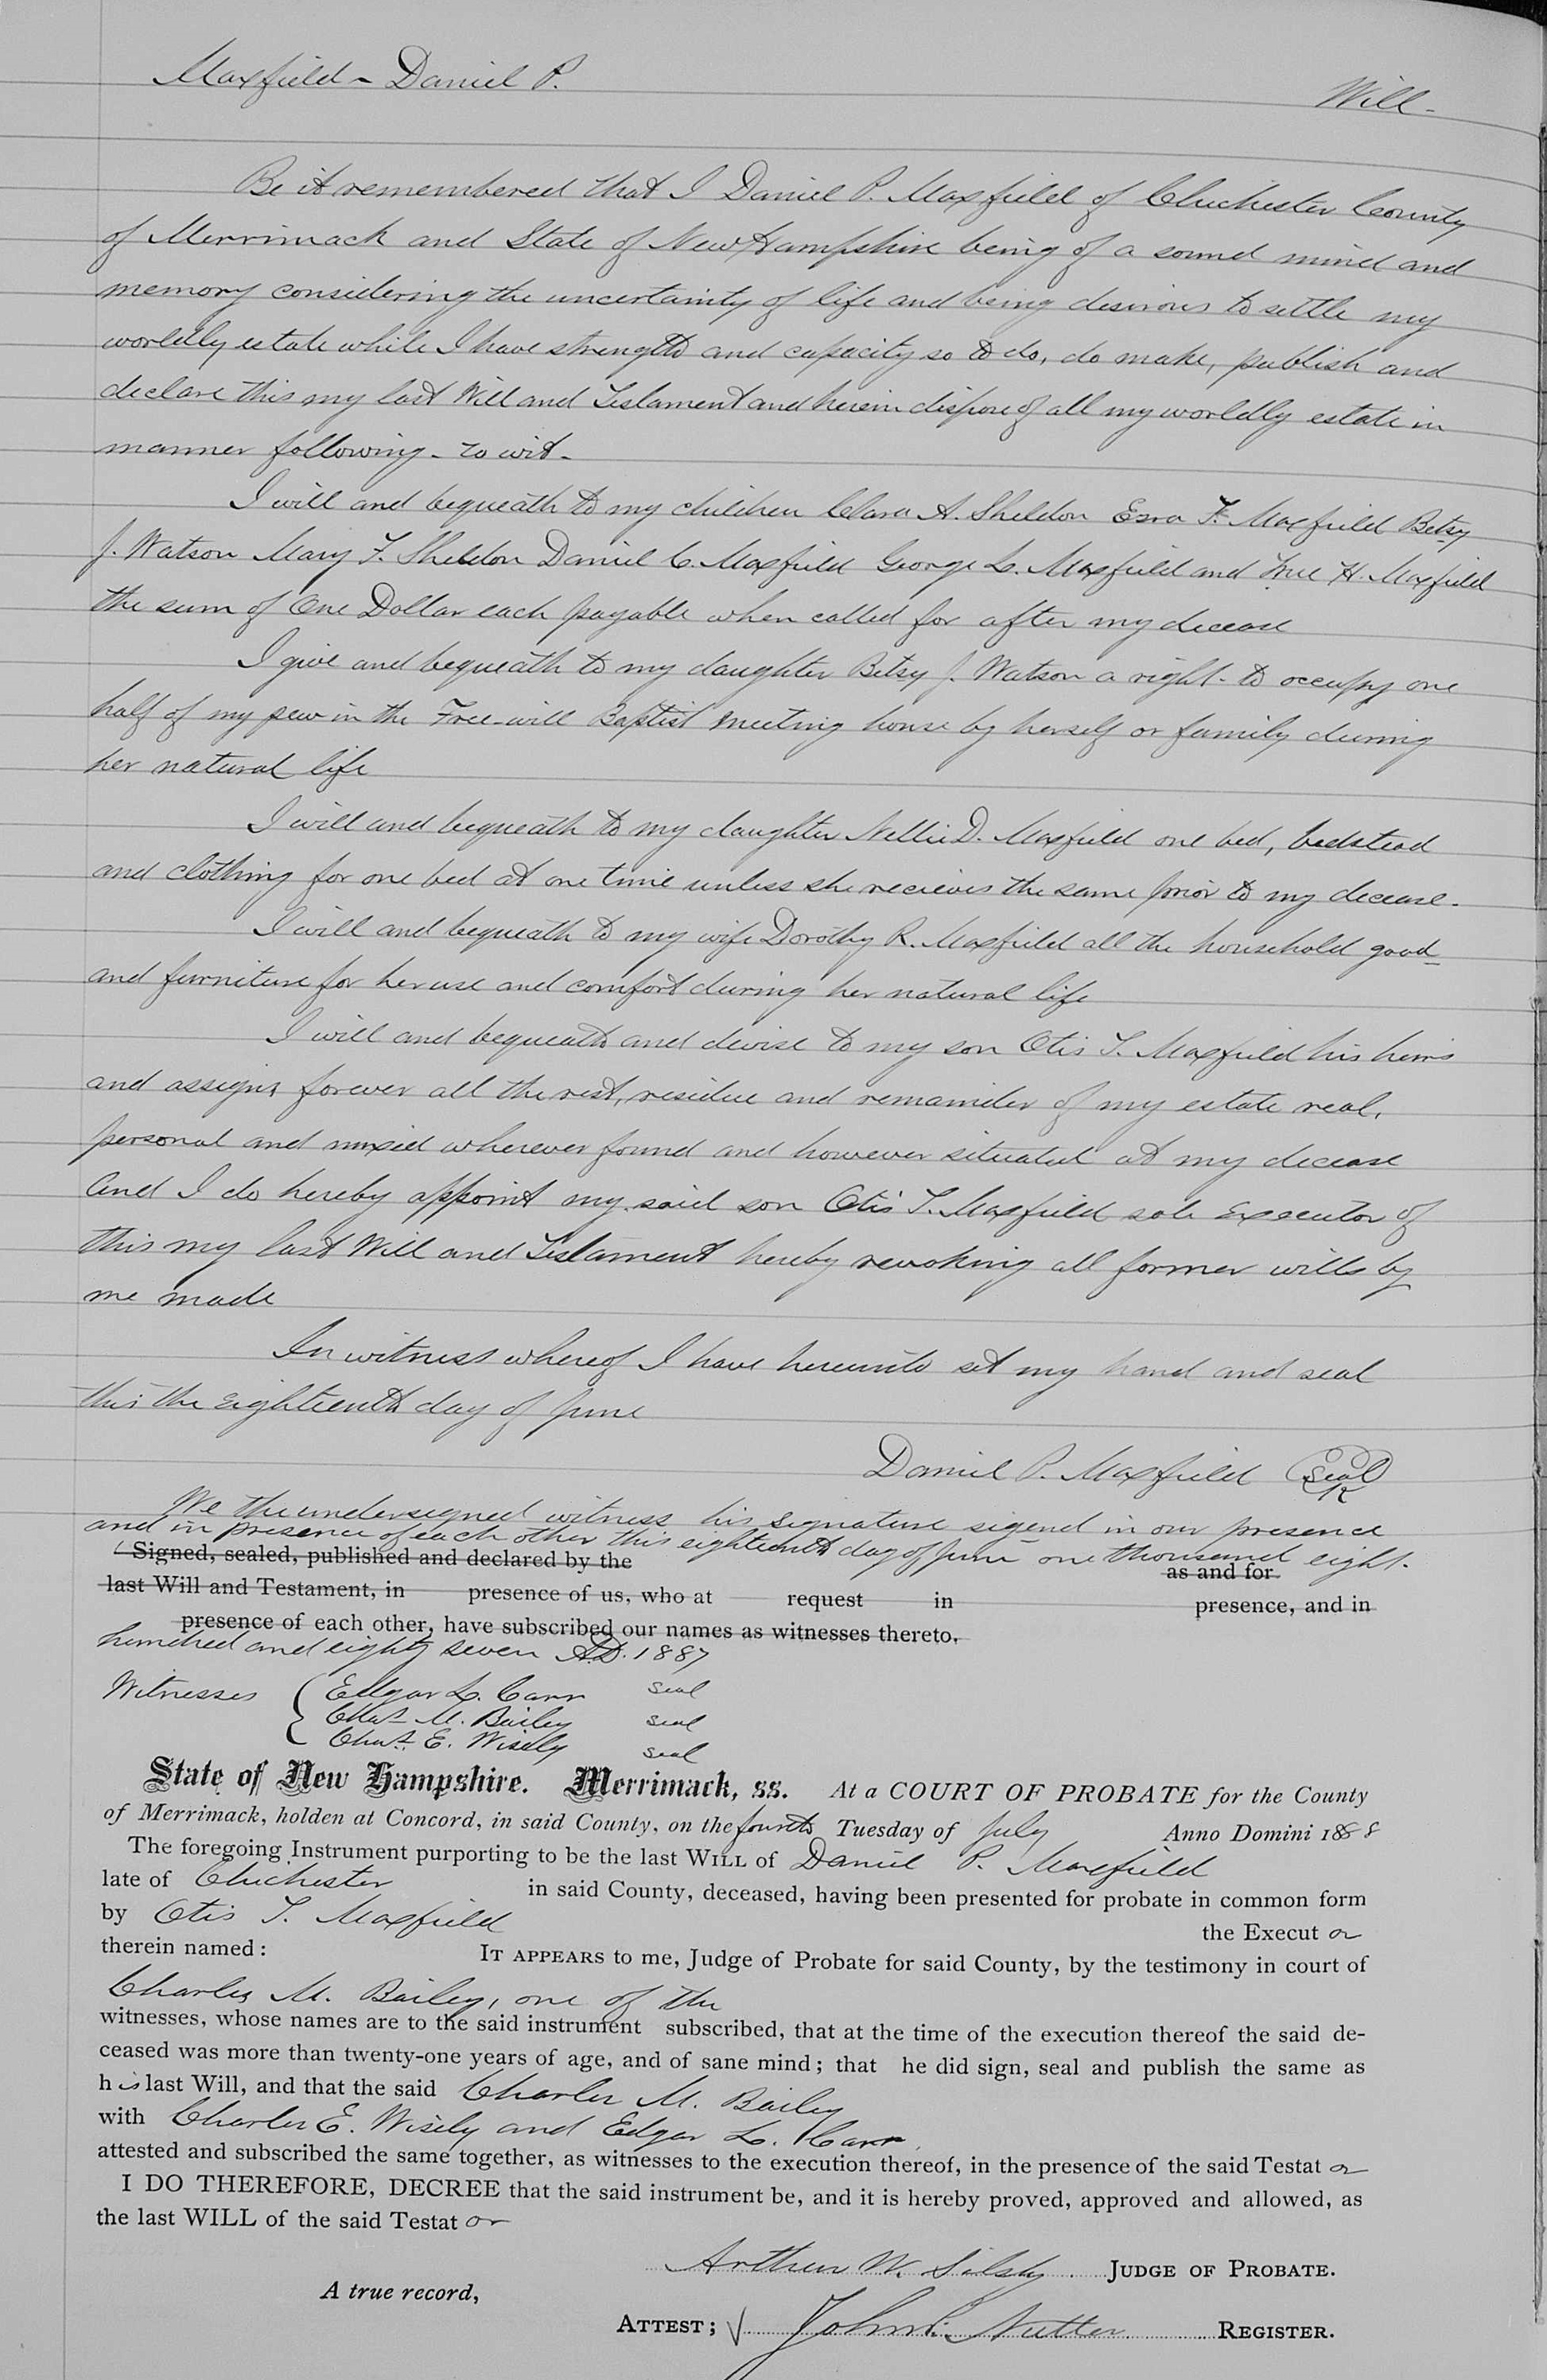 Maxfield - Daniel P.
Will -
Be it remembered that I Daniel P. Maxfield of Chichester County
of Merrimack and State of New Hampshire being of a sound mind and
memory considering the uncertainty of life and being desirous to settle my
worldly estate while I have strength and capacity so to do, do make, publish and
declare this my last Will and Testament and herein dispose of all my worldly estate in
manner following - to wit -
I will and bequeath to my children Clara A. Sheldon Esra F. Maxfield Betsy
J. Watson Mary F. Sheldon Daniel C. Maxfield George L. Maxfield and True H. Maxfield
the sum of One Dollar each payable when called for after my decease
I give and bequeath to my daughter Betsy J. Watson a right - to occupy one
half of my pew in the Free-will Baptist meeting house by herself or family during
her natural life
I will and bequeath to my daughter Nellie D. Maxfield one bed, bedstead
and clothing for one bed at one time unless she recieves the same prior to my decease -
I will and bequeath to my wife Dorothy R. Maxfield all the household good
and furniture for her use and comfort during her natural life
I will and bequeath and devise to my son Otis T. Maxfield his heirs
and assigns forever all the rest, residue and remainder of my estate real,
personal and mixed wherever found and however situated at my decease
And I do hereby appoint my said son Otis T. Maxfield sole Executor of
this my last Will and Testament hereby revoking all former wills by
me made
In witness whereof I have hereunto set my hand and seal
this the eighteenth day of June
Daniel P. Maxfield Seal
We the undersigned witness his signature sigend in our presence
and in presence of each other this eighteenth day of June one thousand eight -
Signed, sealed, published and declared by the as and for
last Will and Testament, in presence of us, who at request in presence, and in
presence of each other, have subscribed our names as witnesses thereto,
hundred and eighty seven A.D. 1887
Witnesses { Edgar L. Carr seal
Chas. M. Bailey seal
Chas. E. Wisely seal
State of New Hampshire. Merrimack, ss. At a COURT OF PROBATE for the County
of Merrimack, holden at Concord, in said County, on the fourth Tuesday of July Anno Domini 1888
The foregoing Instrument purporting to be the last WILL of Daniel P. Maxfield
late of Chichester in said County, deceased, having been presented for probate in common form
by Otis T. Maxfield the Executor
therein named: IT APPEARS to me, Judge of Probate for said County, by the testimony in court of
Charles M. Bailey, one of the
witnesses, whose names are to the said instrument subscribed, that at the time of the execution thereof the said de-
ceased was more than twenty-one years of age, and of sane mind; that he did sign, seal and publish the same as
his last Will, and that the said Charles M. Bailey
with Charles E. Wisely and Edgar L. Carr,
attested and subscribed the same together, as witnesses to the execution thereof, in the presence of the said Testator
I DO THEREFORE, DECREE that the said instrument be, and it is hereby proved, approved and allowed, as
the last WILL of the said Testator
Arthur W. Silsby JUDGE OF PROBATE.
A true record,
ATTEST; John P. Nutter REGISTER.